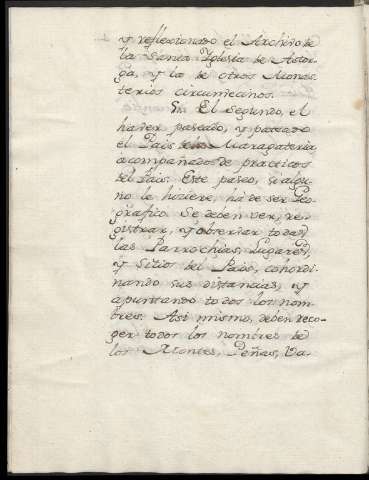 y reflexionado el Archivo de
la Santa Yglesia de Astor-
ga, y la de otros Monas-
terios circumvecinos.
En El Segundo, el
haver paseado, y paseado
el Pais de la Maragateria,
acompañados de practicos
del Pais. Este paseo, si algu-
no le hiziere, há de ser Geo-
grafico. Se deben ver, re-
gistrar, y observar todas
las Parrochias, Lugares,
y Sitios del Pais, cohordi-
nando sus distancias, y
apuntando todos los nom-
bres. Asi mismo, deben reco-
ger todos los nombres de
los Montes, Peñas, Va-